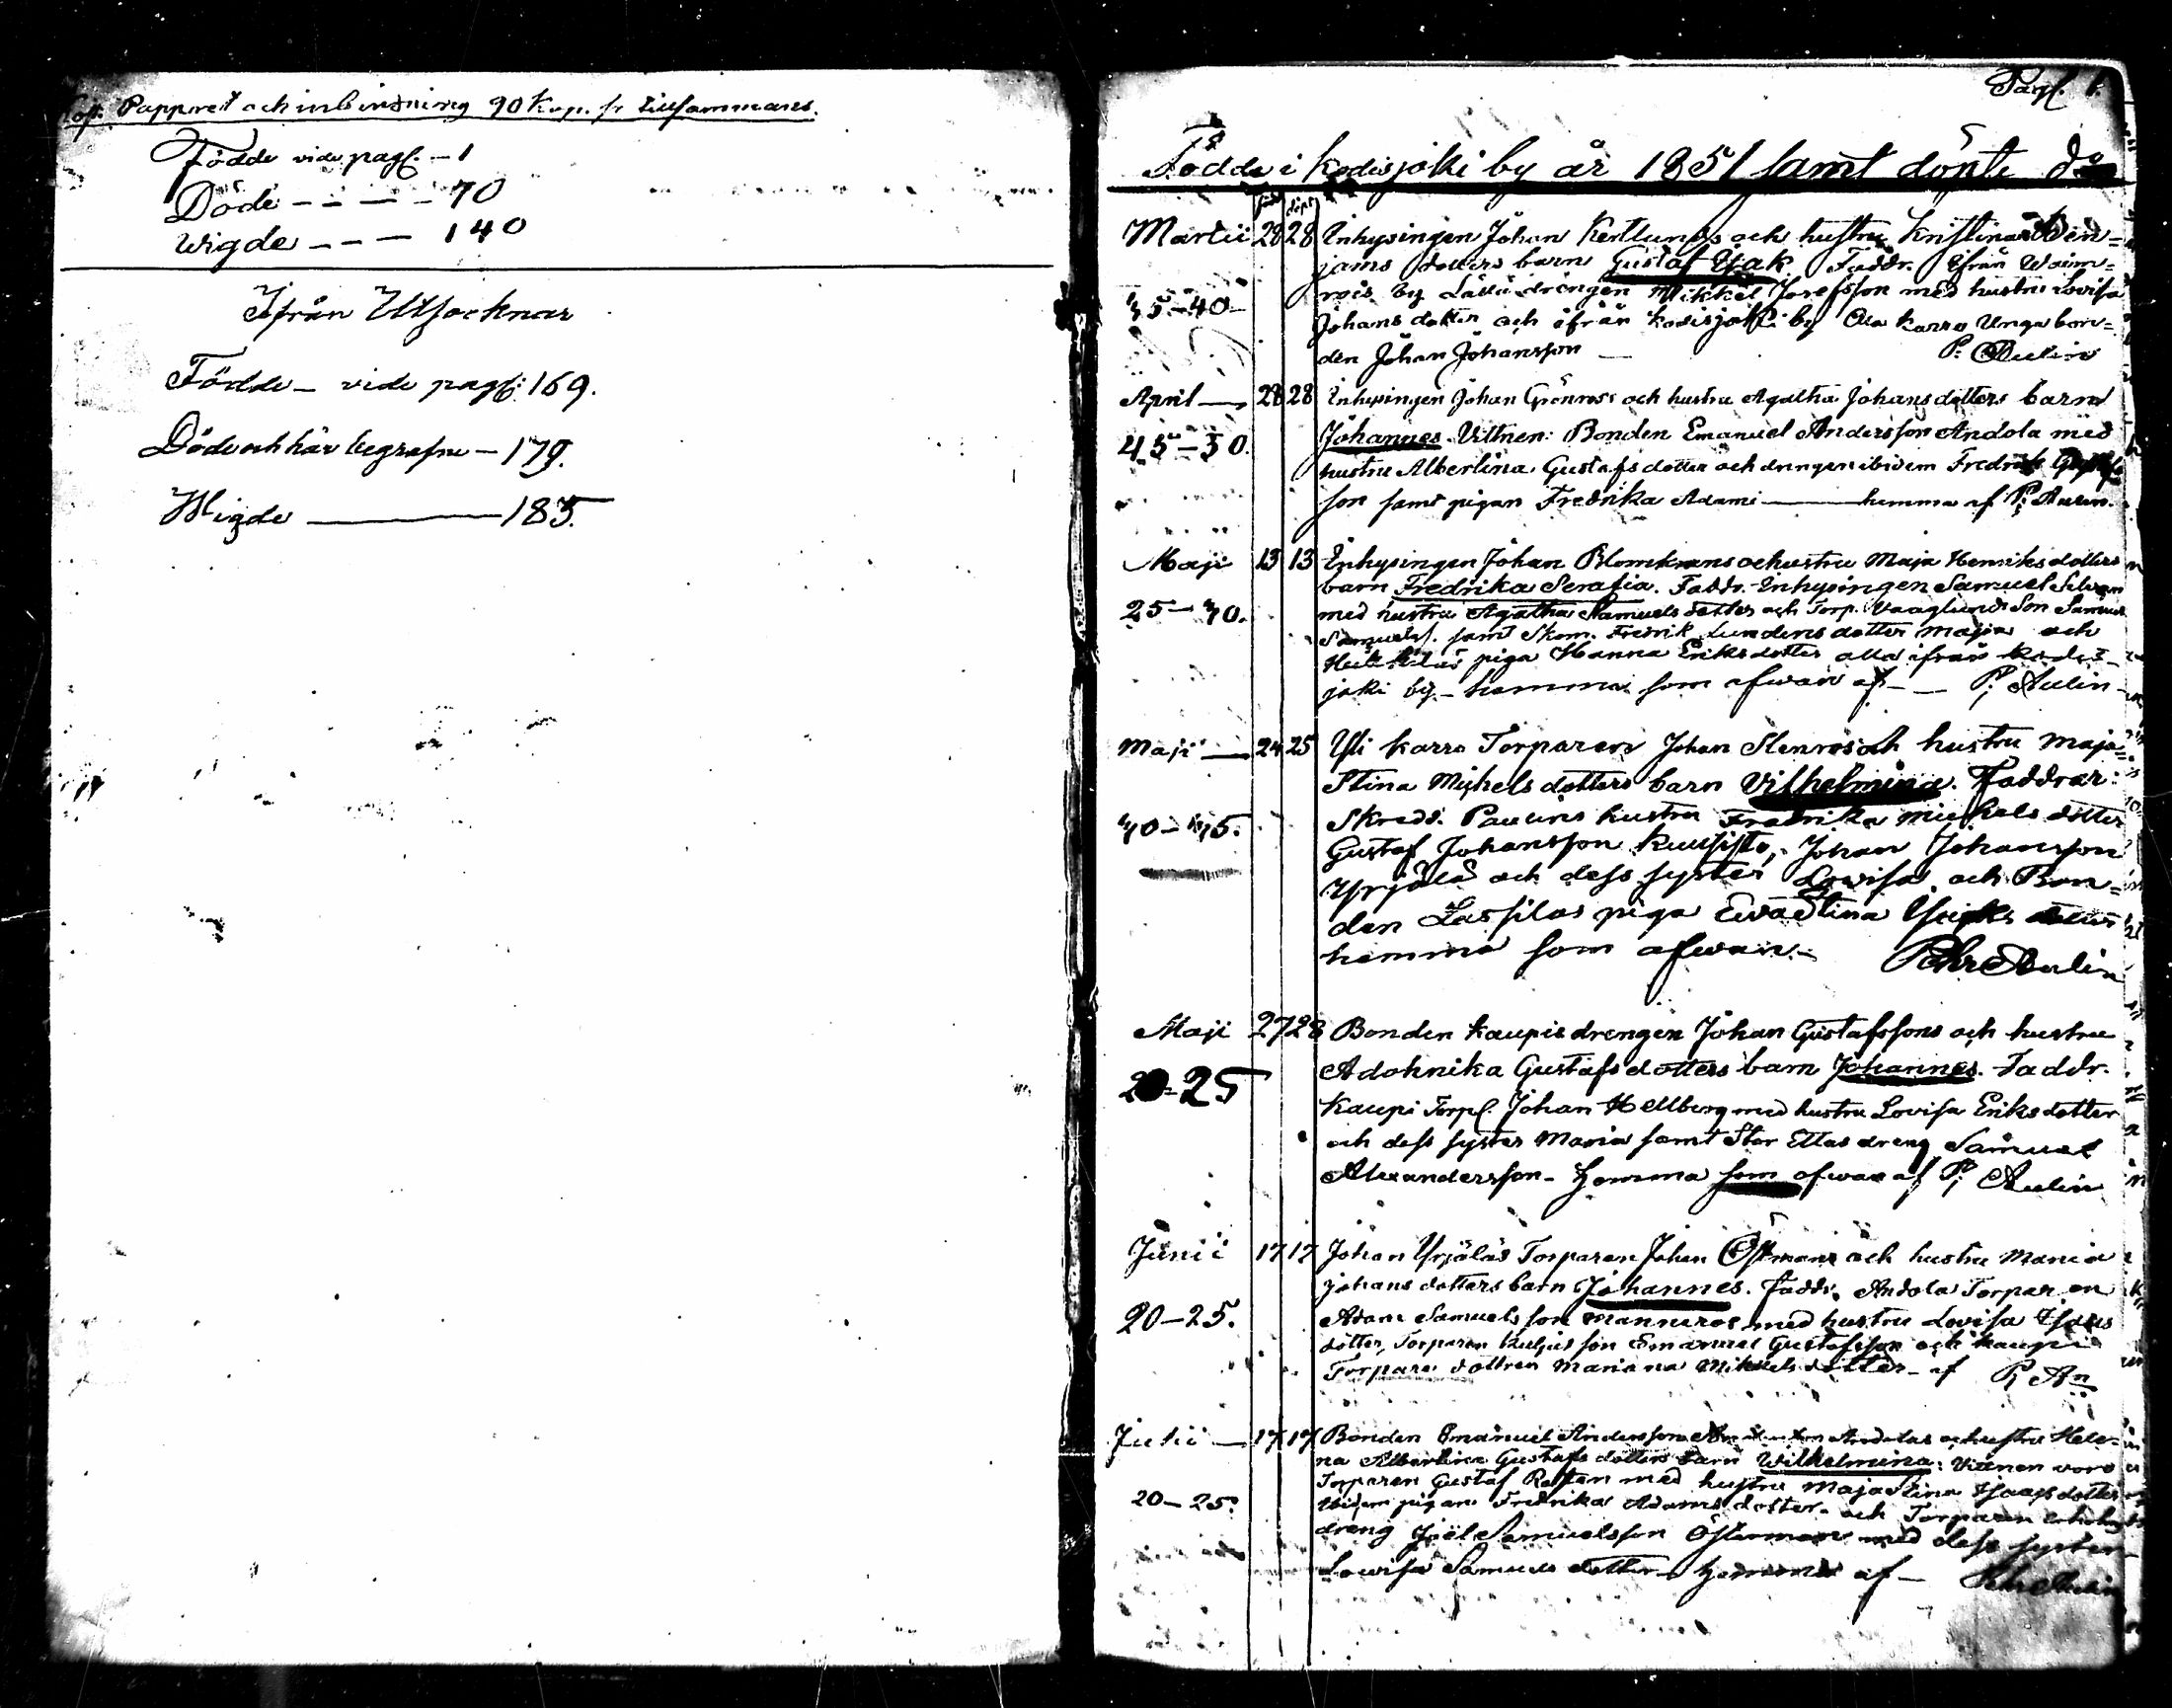 Papperet och inbindning 90 kop. sr tillsammans.
Födde vide pag. - 1
Döde - - - - 70
Wigde - - - 140
Ifrån Utsocknar
Födde - vide pag: 169.
Döde och här begrafne - 179.
Wigde - 185.
Pag. 1.
Födde i Kodisjoki by år 1851 samt döpte
född döpt
Martii 28 28 Inhysingen Johan Kertlunds och hustru Kristina Ben=
jams dotters barn Gustaf Isak. Faddr. ifrån
by drengen Mikkel Josefsson med hustru Lovisa
35-40 Johans dotter och ifrån Kodisjoki by Ala Karra Unga bon=
den Johan Johansson P: Aulin
April 28 28 Inhysingen Johan Grönroos och hustru Agatha Johans dotters barn
45-50. Johannes. Vittnen: Bonden Emanuel Andersson Andola med
hustru Albertina Gustafs dotter och drengen ibidem Fredrik Gustafs
son samt pigan Fredrika Adami hemma af P: Aulin.
Maji 13 13 Inhysingen Johan Blomkrans och hustru Maja Henriks dotters
barn Fredrika Serafia. Faddr. Inhysingen Samuel
25-30. med hustru Agatha Samuels dotter och Torp. Vaaglunds Son Samuel
Samuelss. samt Skom. Fredrik Lundens dotter Maja och
Heikkilas piga Hanna Eriks dotter alla ifrån Kodis-
joki by - hemma som ofwan af - P; Aulin
Maji 24 25 Yli Karra Torparen Johan Stenros och hustru Maja
Stina Michels dotters barn Vilhelmina. Faddrar:
40-45. Skredd. Paulins hustru Fredrika Michels dotter
Gustaf Johansson Kuusisto, Johan Johansson
Yrjälä och dess syster Lovisa och Bon=
den Lassilas piga Eva Stina dotter
hemma som ofwan. - Pehr Aulin
Maji 27 28 Bonden Kaupis drengen Johan Gustafssons och hustru
20-25 Adohnika Gustafs dotters barn Johannes. Faddr.
Kaupi Torp. Johan Hellberg med hustru Lovisa Eriks dotter
och dess syster Maria samt Stor Ettas dreng Samuel
Alexandersson - Hemma som ofwan af P; Aulin
Junii 17 17 Johan Yrjäläs Torparen Johan Östmans och hustru Maria
Johans dotters barn Johannes. Faddr. Andola Torparen
20-25. Adam Samuelsson Manneros med hustru Lovisa Isaks
dotter, Torparen Kuljus son Emanuel Gustafsson och Kaupi
Torpare dottren Mariana Mikaels dotter - af P; An
Julii 17 17 Bonden Emanuel Andersson Andolas och hustru Hele=
na Albertina Gustafs dotters barn Wilhelmina: Vittnen voro
Torparen Gustaf med hustru Maja Stina Isaks dotter
20-25. ibidem pigan Fredrika Adams dotter och Torparen
dreng Joël Samuelsson Österman med dess syster
Lowisa Samuels dotter - Hemma af - Pehr Aulin